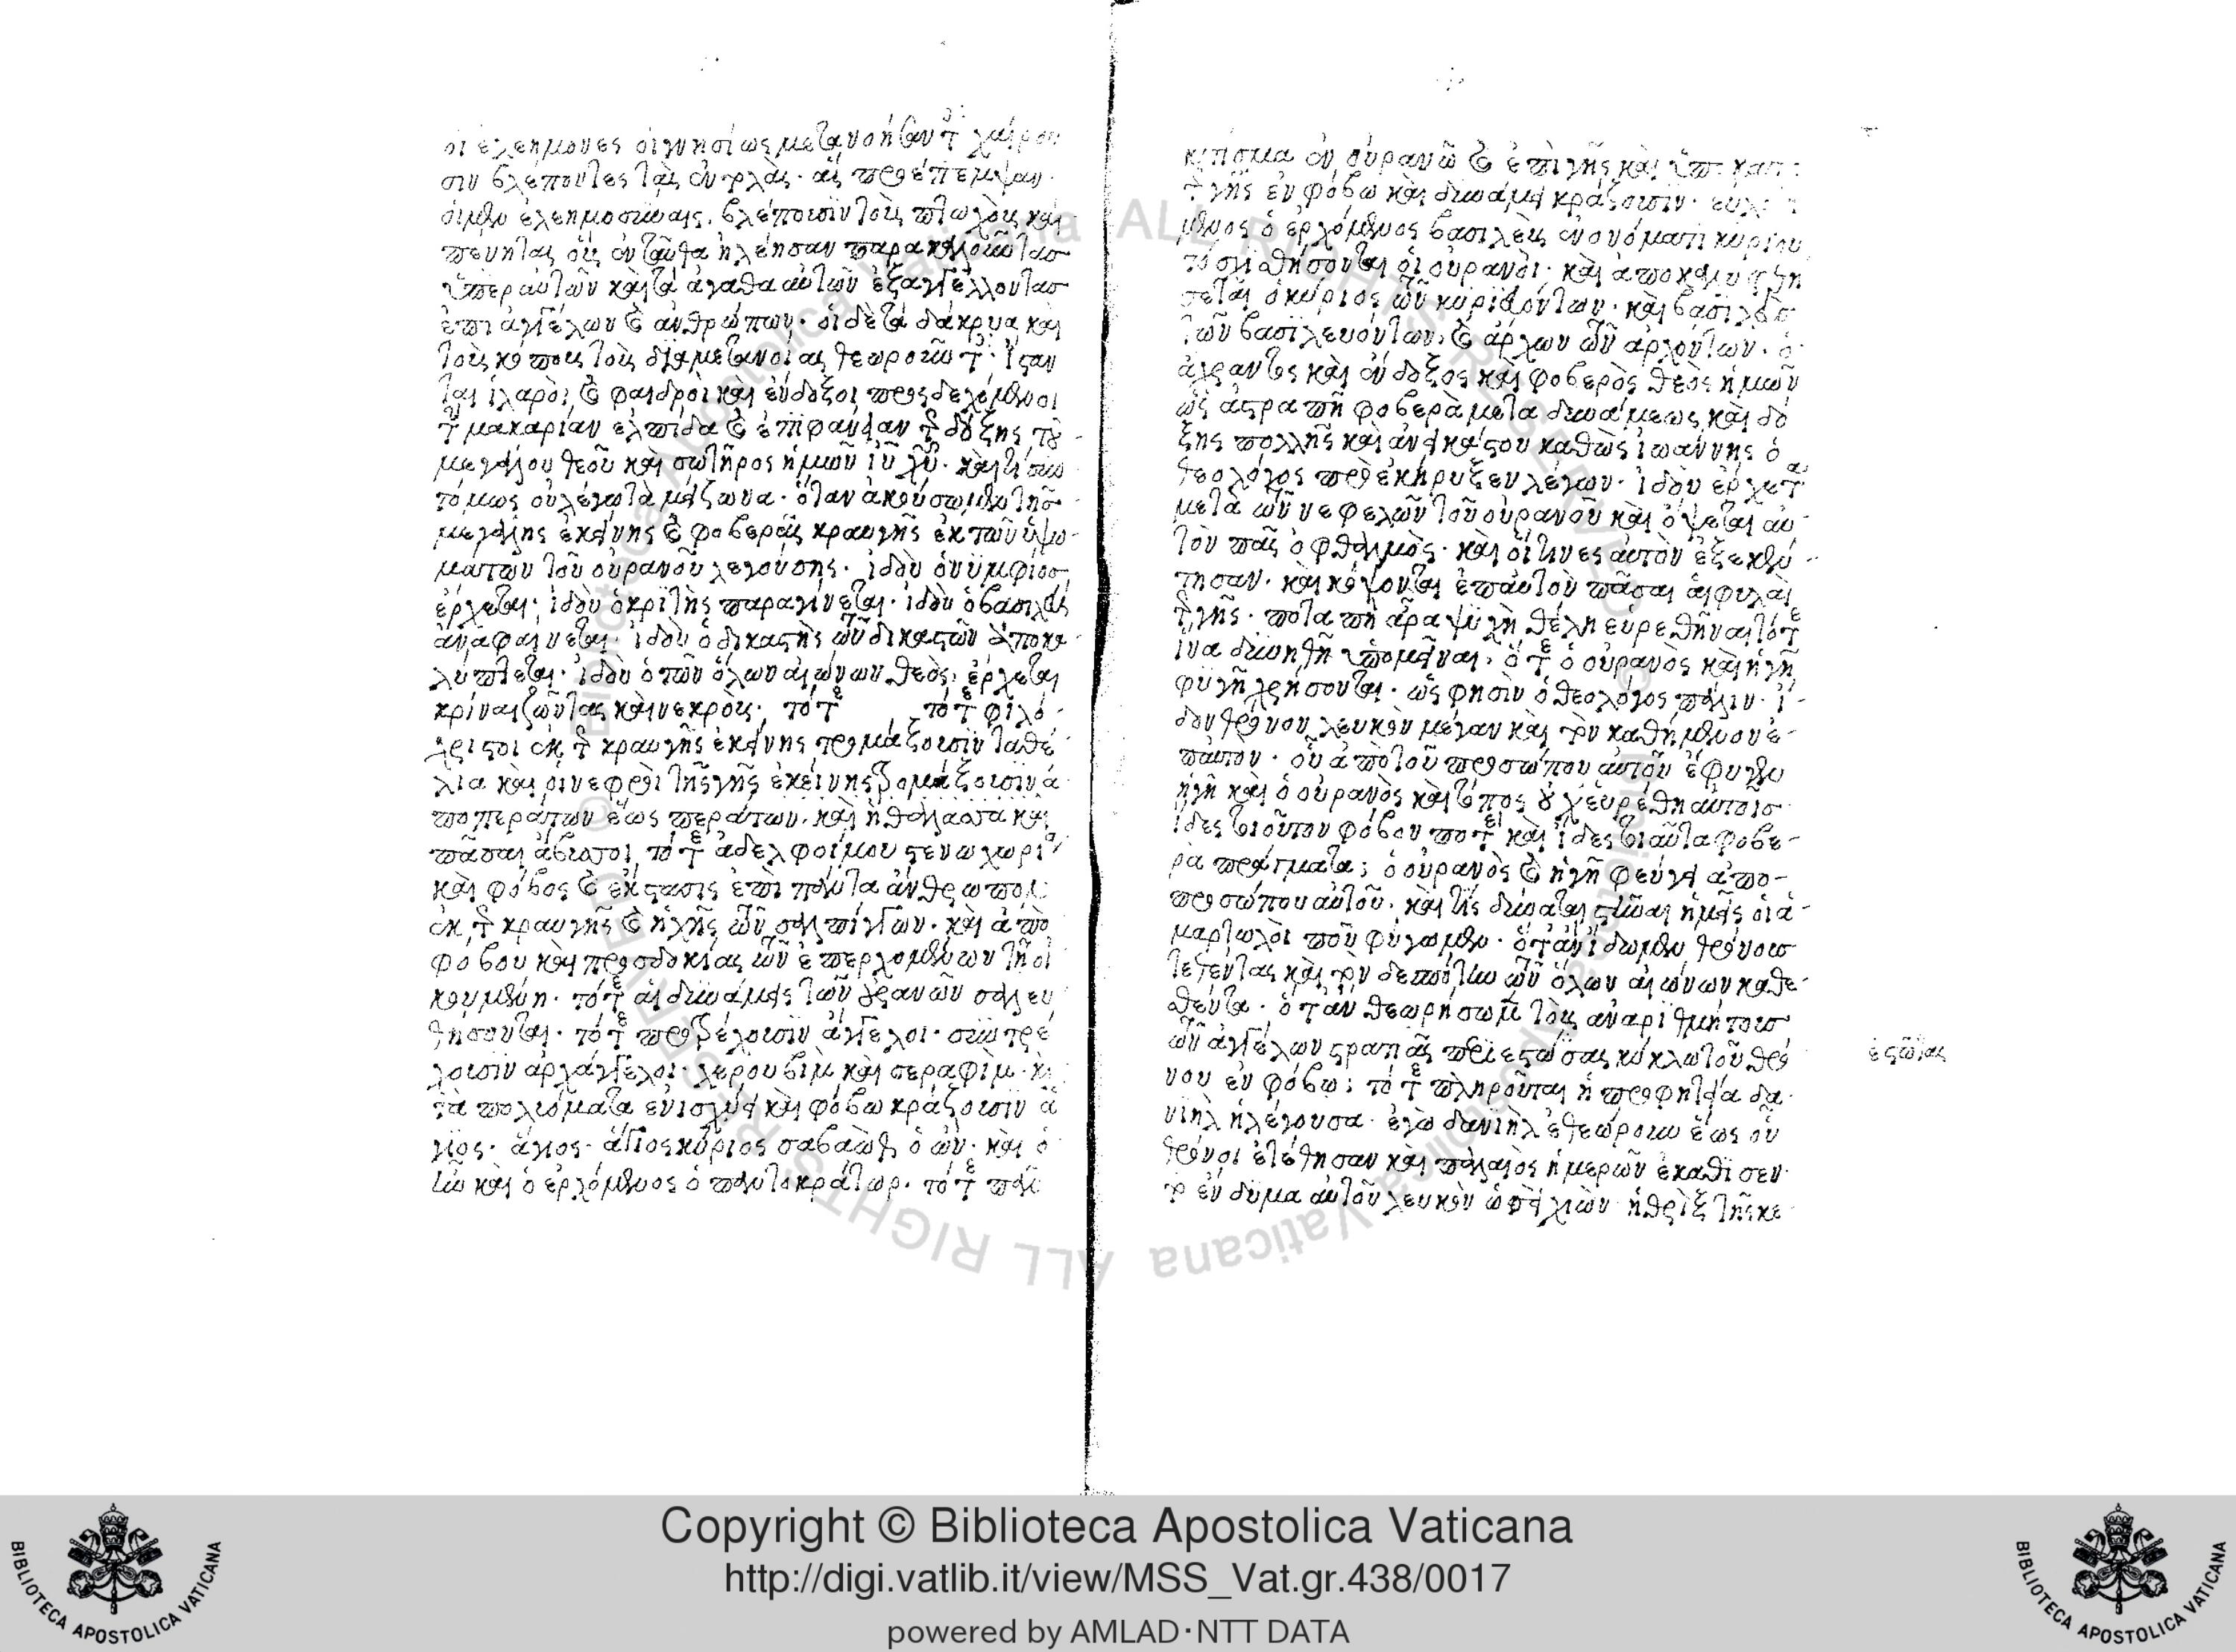 οι ἐλεήμονες οἱ γνησίως μετανοήσαντες χαίρου
σιν βλέποντες τὰς εὐχὰς· ἃς προέπεμψαν·
οἱ μὲν ἐλεημοσύναις· βλέπουσιν τοὺς πτωχοὺς καὶ
πένητας οὓς ἐνταῦθα ἠλέησαν παρακαλοῦντασ
ὑπὲρ αὐτῶν καὶ τὰ ἀγαθὰ αὐτῶν ἐξαγγέλλοντασ
ἐπι ἀγγέλων καὶ ἀνθρώπων· οἱ δὲ τὰ δάκρυα καὶ
τοὺς κόπους τοὺς διὰ μετανοίας θεωροῦντες· ἵσταν
ται ἱλαροὶ καὶ φαιδροὶ καὶ ἔνδοξοι προσδεχόμενοι
τὴν μακαρίαν ἐλπίδα καὶ ἐπιφάνειαν τῆς δόξης τοῦ
μεγάλου θεοῦ καὶ σωτῆρος ἡμῶν ἰυ χυ· καὶ τί συν
τόμως οὐ λέγω τὰ μείζωνα· ὅταν ἀκούσωμεν τῆσ
μεγάλης ἐκείνης καὶ φοβερᾶς κραυγῆς ἐκ τῶν ὑψω
μάτων τοῦ οὐρανοῦ λεγούσης· ἰδοὺ ὁ νυμφίοσ
ἔρχεται· ἰδοὺ ὁ κριτὴς παραγίνεται· ἰδοὺ ὁ βασιλεὺς
ἀναφαίνεται· ἰδοὺ ὁ δικαστὴς τῶν δικαστῶν ἀποκα
λύπτεται· ἰδοὺ ὁ τῶν ὅλων αἰώνων θεὸς· ἔρχεται
κρίναι ζῶντας καὶ νεκροὺς· τότε τότε φιλό
χριστοι ἐκ τῆς κραυγῆς ἐκείνης τρομάξουσιν τὰ θέ
λια καὶ οἱ νεφροὶ τῆς γῆς ἐκείνης τρομάξουσιν ἀ
πο περάτων ἕως περάτων· καὶ ἡ θάλασσα καὶ
πᾶσαι ἄβυσσοι τότε ἀδελφοί μου στενωχωρί
καὶ φόβος καὶ ἔκστασις ἐπὶ πάντα ἄνθρωπον
ἐκ τῆς κραυγῆς καὶ ἠχῆς τῶν σαλπίγγων· καὶ ἀπὸ
φόβου καὶ προσδοκίας τῶν ἐπερχομένων τῇ οἰ
κουμένη· τότε αἱ δυνάμεις τῶν οὐρανῶν σαλευ
θήσονται· τότε προτρέχουσιν ἄγγελοι· συντρέ
χουσιν ἀρχάγγελοι· χερουβὶμ καὶ σεραφὶμ· καὶ
τὰ πολυόματα ἐν ἰσχύει καὶ φόβω κράζουσιν ἅ
γϊος· ἅγιος· ἅγιος κύριος σαβαὼθ ὁ ὢν· καὶ ὁ
ἦν καὶ ὁ ἐρχόμενος ὁ παντοκράτωρ· τότε πᾶν
κτίσμα ἐν οὐρανῶ καὶ ἐπὶ γῆς καὶ ὑποκάτω
τῆς γῆς ἐν φόβω καὶ δυνάμει κράζουσιν· εὐλο
μένος ὁ ἐρχόμενος βασιλεὺς ἐν ονόματι κυρίου
τό σχισθήσονται οἱ οὐρανοὶ· καὶ ἀποκαλυφθή
σεται ὁ κύριος τῶν κυριευόντων· καὶ βασιλεὺσ
τῶν βασιλευόντων· καὶ ἄρχων τῶν ἀρχόντων· ὁ
ἄχραντος καὶ ἔνδοξος καὶ φοβερὸς θεὸς ἡμῶν
ὡς ἀστραπὴ φοβερὰ μετα δυνάμεως καὶ δό
ξης πολλῆς καὶ ἀνεικάστου καθὼς ἰωάννης ὁ
θεολόγος προεκήρυξεν λέγων· ἰδοὺ ἔρχεται
μετὰ τῶν νεφελῶν τοῦ οὐρανοῦ καὶ ὄψεται αὐ
τὸν πᾶς ὀφθαλμὸς· καὶ οἵτινες αὐτὸν ἐξεκέν
τησαν· καὶ κόψονται ἐπ αὐτὸν πᾶσαι αἱ φυλαὶ
τῆς γῆς· ποταπὴ ἄρα ψυχὴ θέλη εὑρεθῆναι τότε
ινα δυνηθῆ ὑπομεῖναι· ὅτε ὁ οὐρανὸς καὶ ἡ γῆ
φυγῆ χρήσονται· ὡς φησὶν ὁ θεολόγος πάλιν· ἴ
δον θρόνον λευκὸν μέγαν καὶ τὸν καθήμενον ἐ
π αὐτὸν· οὗ ἀπὸ τοῦ προσώπου αὐτοῦ ἔφυγεν
ἡ γῆ καὶ ὁ οὐρανὸς καὶ τόπος οὐχ εὑρέθη αὐτοῖσ
ἶδες τοιοῦτον φόβον ποτε καὶ ἶδες τοιαῦτα φοβε
ρὰ πράγματα; ὁ οὐρανὸς καὶ ἡ γῆ φεύγει ἀπο
προσώπου αὐτοῦ· καὶ τίς δύναται στῆναι ἡμεῖς οἱ ἁ
μαρτωλοὶ ποῦ φύγωμεν· ὅταν ἴδωμεν θρόνουσ
τεθέντας καὶ τὸν δεσπότην τῶν ὅλων αἰώνων καθε
θέντα· ὅταν θεωρήσωμεν τοὺς ἀναριθμήτουσ
τῶν ἀγγέλων στρατιὰς περιεστώσας κύκλω τοῦ θρό
νου ἐν φόβω; τότε πληροῦται ἡ προφητεία δα
νιὴλ ἡ λέγουσα· ἐγὼ δανιὴλ ἐθεώρουν ἕως οὗ
θρόνοι ἐτέθησαν καὶ παλαιὸς ἡμερῶν ἐκάθισεν·
τὸ ἔνδυμα αὐτοῦ λευκὸν ὡσεὶ χιὼν· ἡ θρὶξ τῆς κε
ἑστῶτας
Copyright © Biblioteca Apostolica Vaticana
http://digi.vatlib.it/view/MSS_Vat.gr.438/0017
powered by AMLAD·NTT DATA
BIBLIOTECA APOSTOLICA VATICANA
BIBLIOTECA APOSTOLICA VATICANA